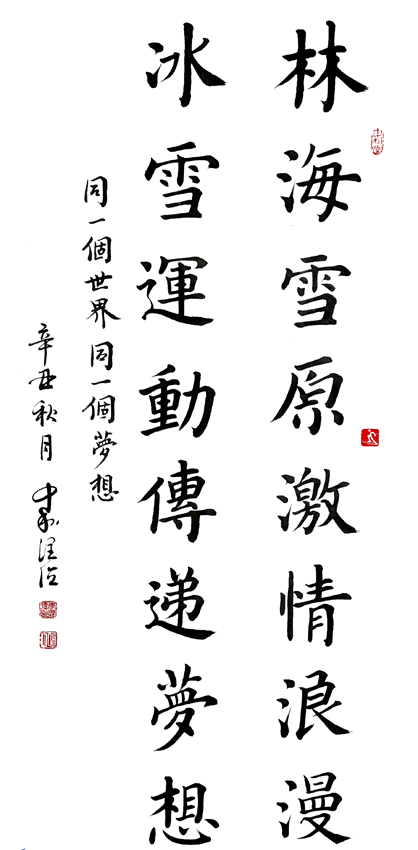 林海雪原激情浪漫
冰雪運動傳递夢想
同一個世界同一個夢想
辛丑秋月